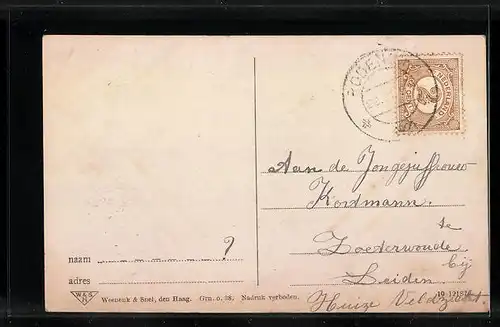 RODEN
NEDERLAND
2½
Aan de Jongejuffrouw
Kortmann.
te
Zoeterwoude
bij
Leiden
Huize Veldzicht.
naam ?
adres
W&S
H
Weenenk & Snel, den Haag. Grn. o. 98. Nadruk verboden.
19 12187